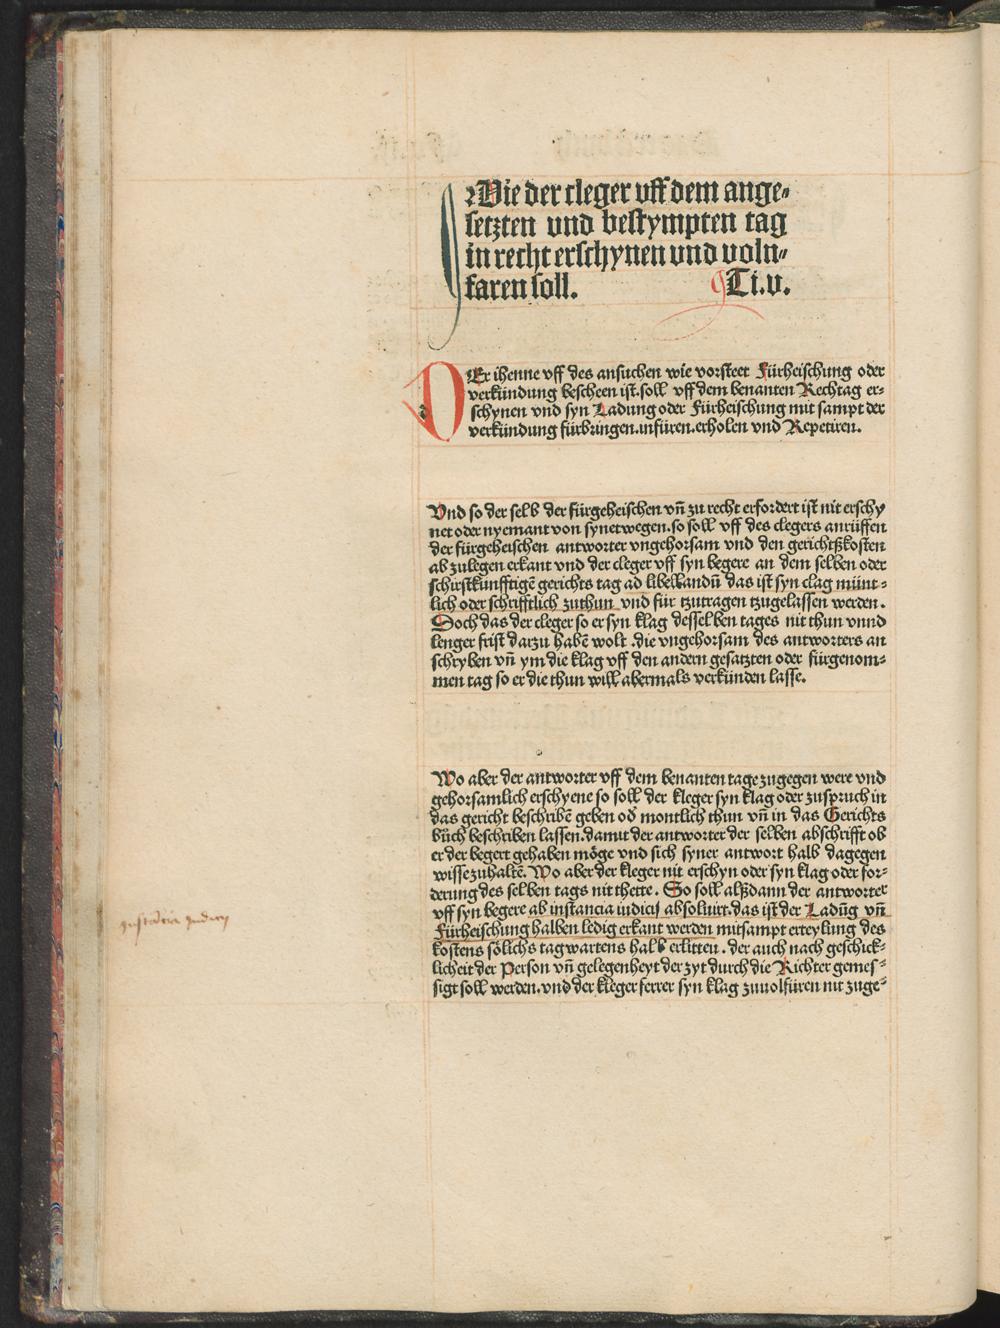 Wie der cleger vff dem ange⸗
setzten vnd bestympten tag
in recht erschynen vnd voln⸗
faren soll. Ti.v.
DEr ihenne vff des ansuchen wie vorsteet Fürheischung oder
verkündung bescheen ist.soll vff dem benanten Rechtag er⸗
schynen vnd syn Ladung oder Fürheischung mit sampt der
verkündung fürbringen.infüren.erholen vnd Repetiren.
Vnd so der selb der fürgeheischen vñ zu recht erfordert ist nit erschy
net oder nyemant von synetwegen.so soll vff des clegers anrüffen
der fürgeheischen antworter vngehorsam vnd den gerichtßkosten
ab zulegen erkant vnd der cleger vff syn begere an dem selben oder
schirstkünfftigē gerichts tag ad libellandū das ist syn clag münt⸗
lich oder schrifftlich zuthun vnd für tzutragen tzugelassen werden.
Doch das der cleger so er syn klag desselben tages nit thun vnnd
lenger frist darzu habē wolt .die vngehorsam des antworters an
schryben vñ ym die klag vff den andern gesatzten oder fürgenom⸗
men tag so er die thun will abermals verkünden lasse.
Wo aber der antworter vff dem benanten tage zugegen were vnd
gehorsamlich erschyene so soll der kleger syn klag oder zuspruch in
das gericht beschribē geben od montlich thun vñ in das Gerichts
bůch beschriben lassen.damit der antworter der selben abschrifft ob
er der begert gehaben möge vnd sich syner antwort halb dagegen
wisse zuhaltē. Wo aber der kleger nit erschyn oder syn klag oder for⸗
derung des selben tags nit thette. So soll alßdann der antworter
vff syn begere ab instancia iudicij absoluirt.das ist der Ladūg vñ
Fürheischung halben ledig erkant werden mitsampt erteylung des
kostens sölichs tagwartens halb erlitten. der auch nach geschick⸗
licheit der Person vñ gelegenheyt der zyt durch die Richter gemes⸗
sigt soll werden.vnd der kleger ferrer syn klag zuuolfüren nit zuge⸗